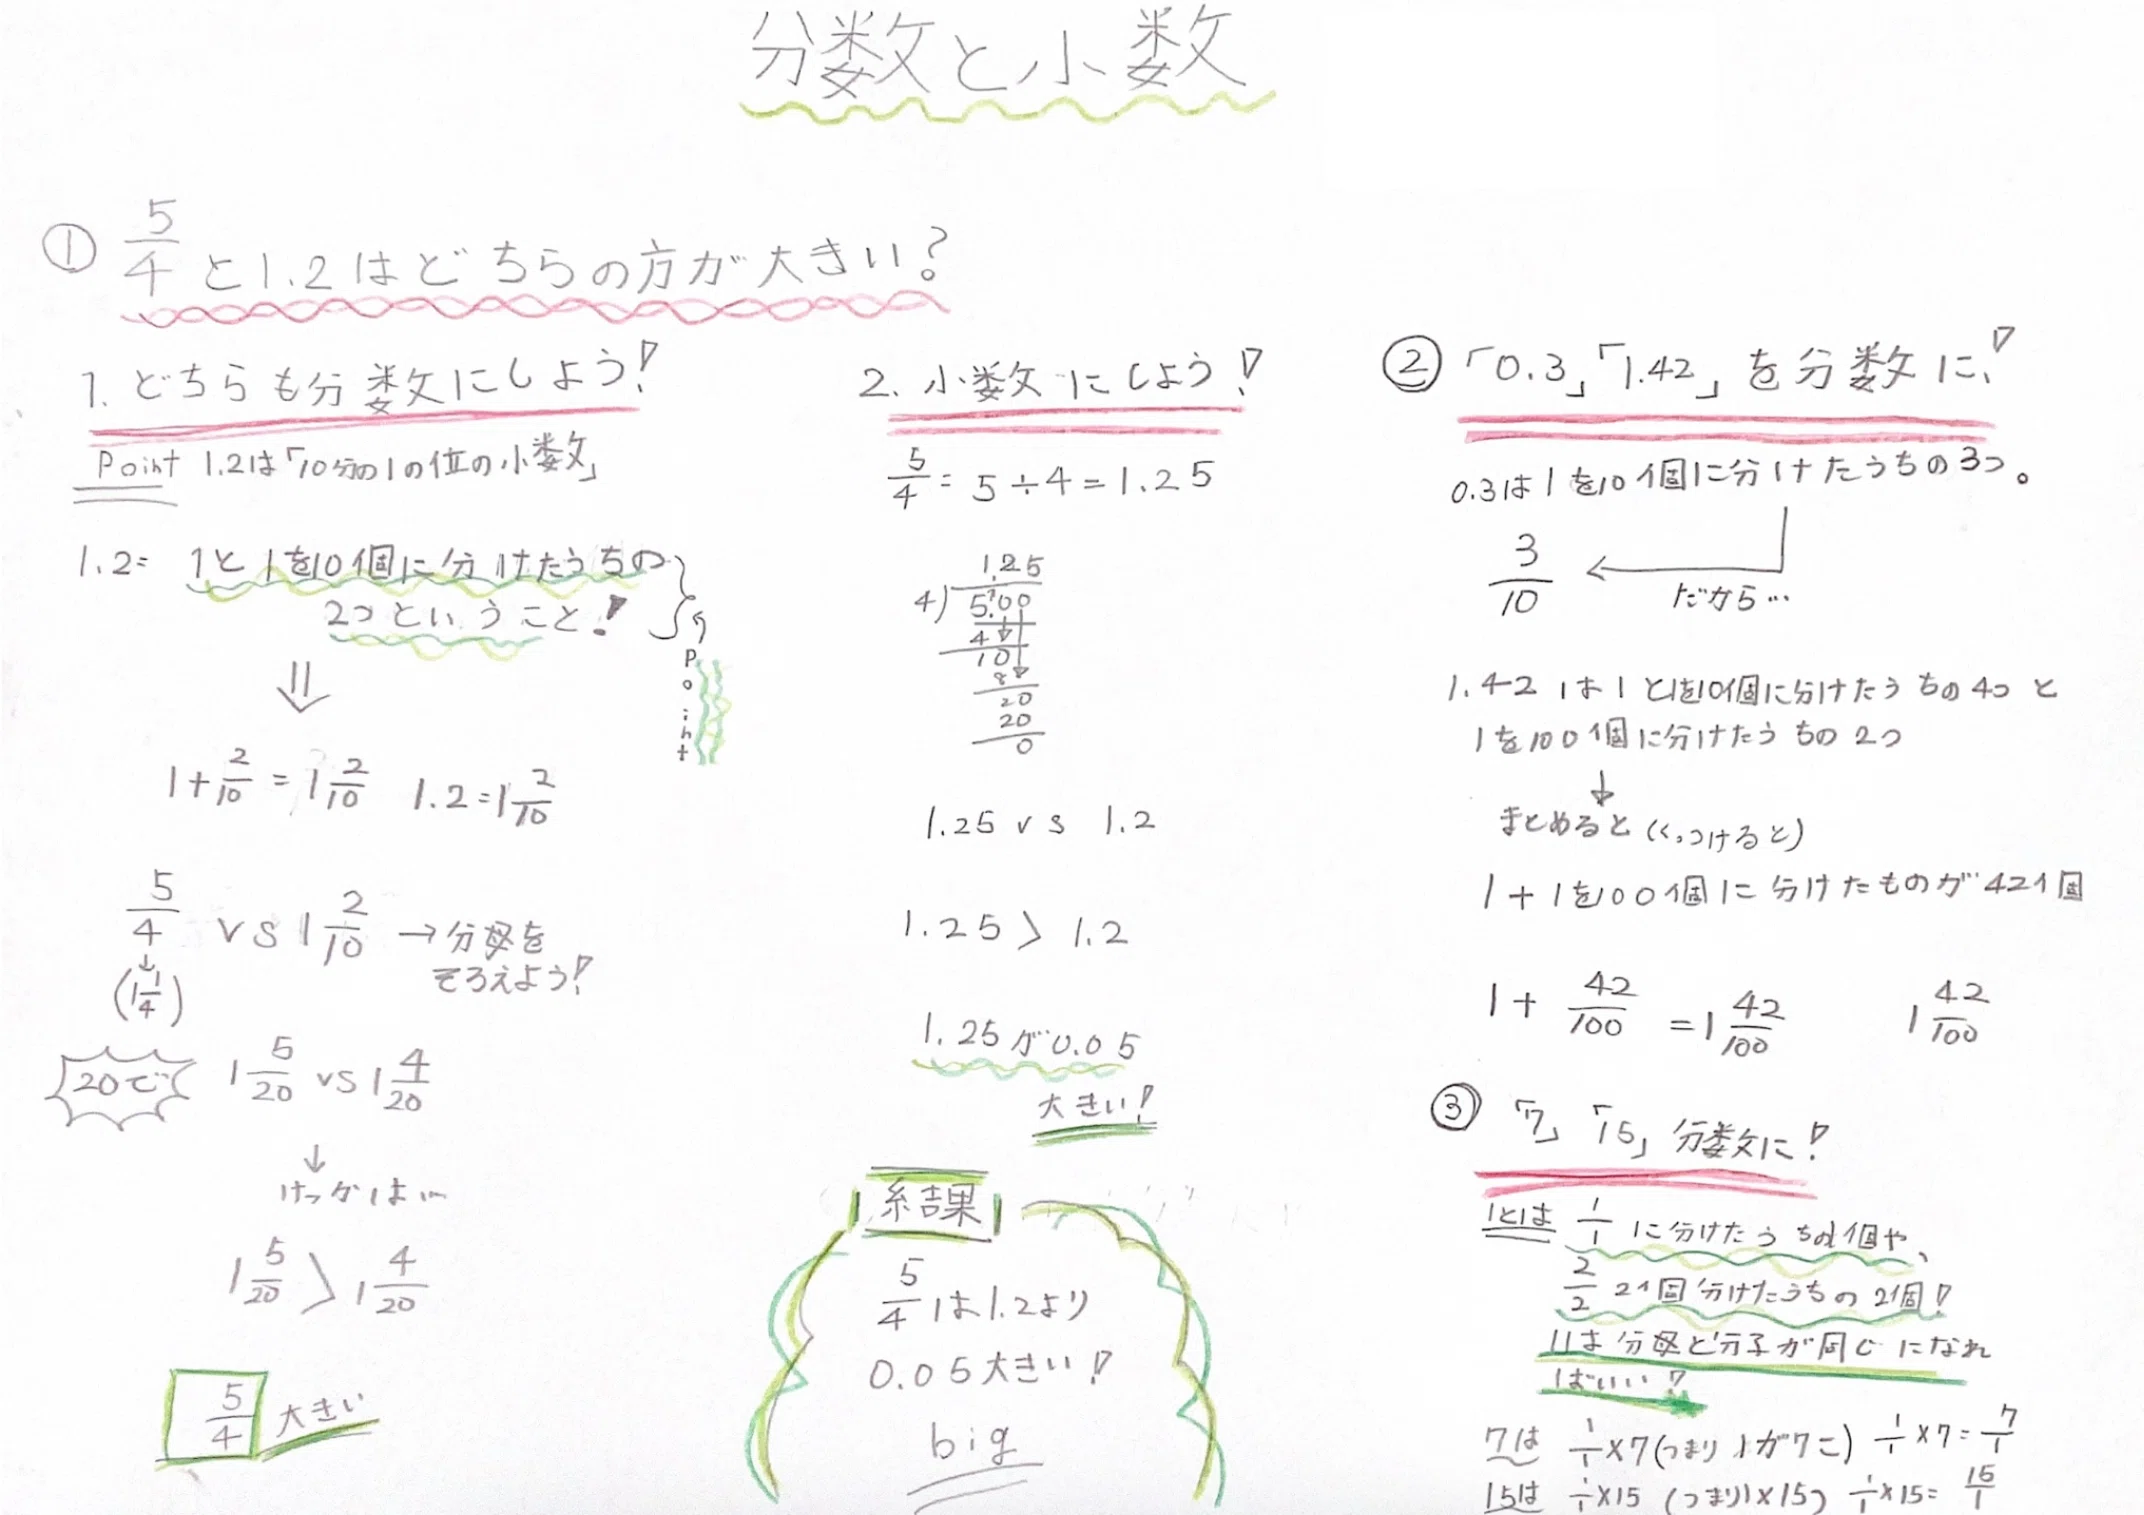 分数と小数
① 5/4と1.2はどちらの方が大きい?
1. どちらも分数にしよう!
Point 1.2は「10分の1の位の小数」
1.2= 1と1を10個に分けたうちの
2つということ!
Point
⇓
1+2/10=1 2/10 1.2=1 2/10
5/4 vs 1 2/10 →分母を
そろえよう!
↓
(1 1/4)
20で 1 5/20 vs 1 4/20
↓
けっかは…
1 5/20 > 1 4/20
5/4 大きい
2. 小数にしよう!
5/4=5÷4=1.25
1.25
4)5.00
4
10
8
20
20
0
1.25 vs 1.2
1.25 > 1.2
1.25が0.05
大きい!
結果
5/4は1.2より
0.05大きい!
big
② 「0.3」「1.42」を分数に!
0.3は1を10個に分けたうちの3つ。
3/10 ←
だから…
1.42は1と1を10個に分けたうちの4つと
1を100個に分けたうちの2つ
↓
まとめると(くっつけると)
1+1を100個に分けたものが42個
1+42/100=1 42/100 1 42/100
③ 「7」「15」分数に!
1とは 1/1に分けたうちの1個や、
2/2 2個分けたうちの2個!
1は分母と分子が同じになれ
ばいい!
7は 1/1×7(つまり1が7こ) 1/1×7=7/1
15は 1/1×15 (つまり1×15) 1/1×15=15/1